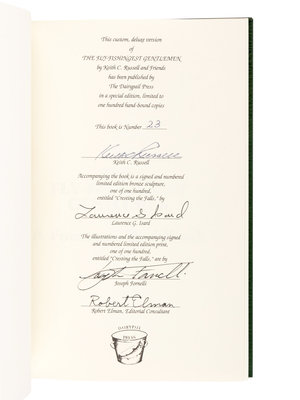 This custom, deluxe version
of
THE FLY-FISHINGEST GENTLEMEN
by Keith C. Russell and Friends
has been published by
The Dairypail Press
in a special edition, limited to
one hundred hand-bound copies
This book is Number 23
Keith C Russell
Keith C. Russell
Accompanying the book is a signed and numbered
limited edition bronze sculpture,
one of one hundred,
entitled "Cresting the Falls," by
Laurence G Isard
Laurence G. Isard
The illustrations and the accompanying signed
and numbered limited edition print,
one of one hundred,
entitled "Cresting the Falls," are by
Joseph Fornelli
Joseph Fornelli
Robert Elman
Robert Elman, Editorial Consultant
DAIRYPAIL
PRESS